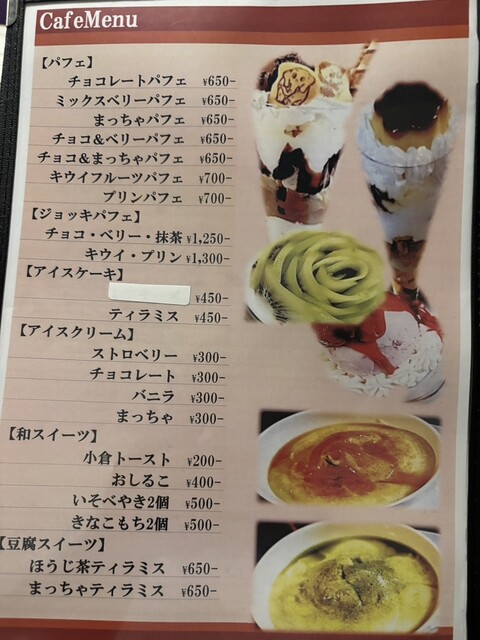 CafeMenu
【パフェ】
チョコレートパフェ ¥650-
ミックスベリーパフェ ¥650-
まっちゃパフェ ¥650-
チョコ&ベリーパフェ ¥650-
チョコ&まっちゃパフェ ¥650-
キウイフルーツパフェ ¥700-
プリンパフェ ¥700-
【ジョッキパフェ】
チョコ・ベリー・抹茶 ¥1,250-
キウイ・プリン ¥1,300-
【アイスケーキ】
¥450-
ティラミス ¥450-
【アイスクリーム】
ストロベリー ¥300-
チョコレート ¥300-
バニラ ¥300-
まっちゃ ¥300-
【和スイーツ】
小倉トースト ¥200-
おしるこ ¥400-
いそべやき2個 ¥500-
きなこもち2個 ¥500-
【豆腐スイーツ】
ほうじ茶ティラミス ¥650-
まっちゃティラミス ¥650-